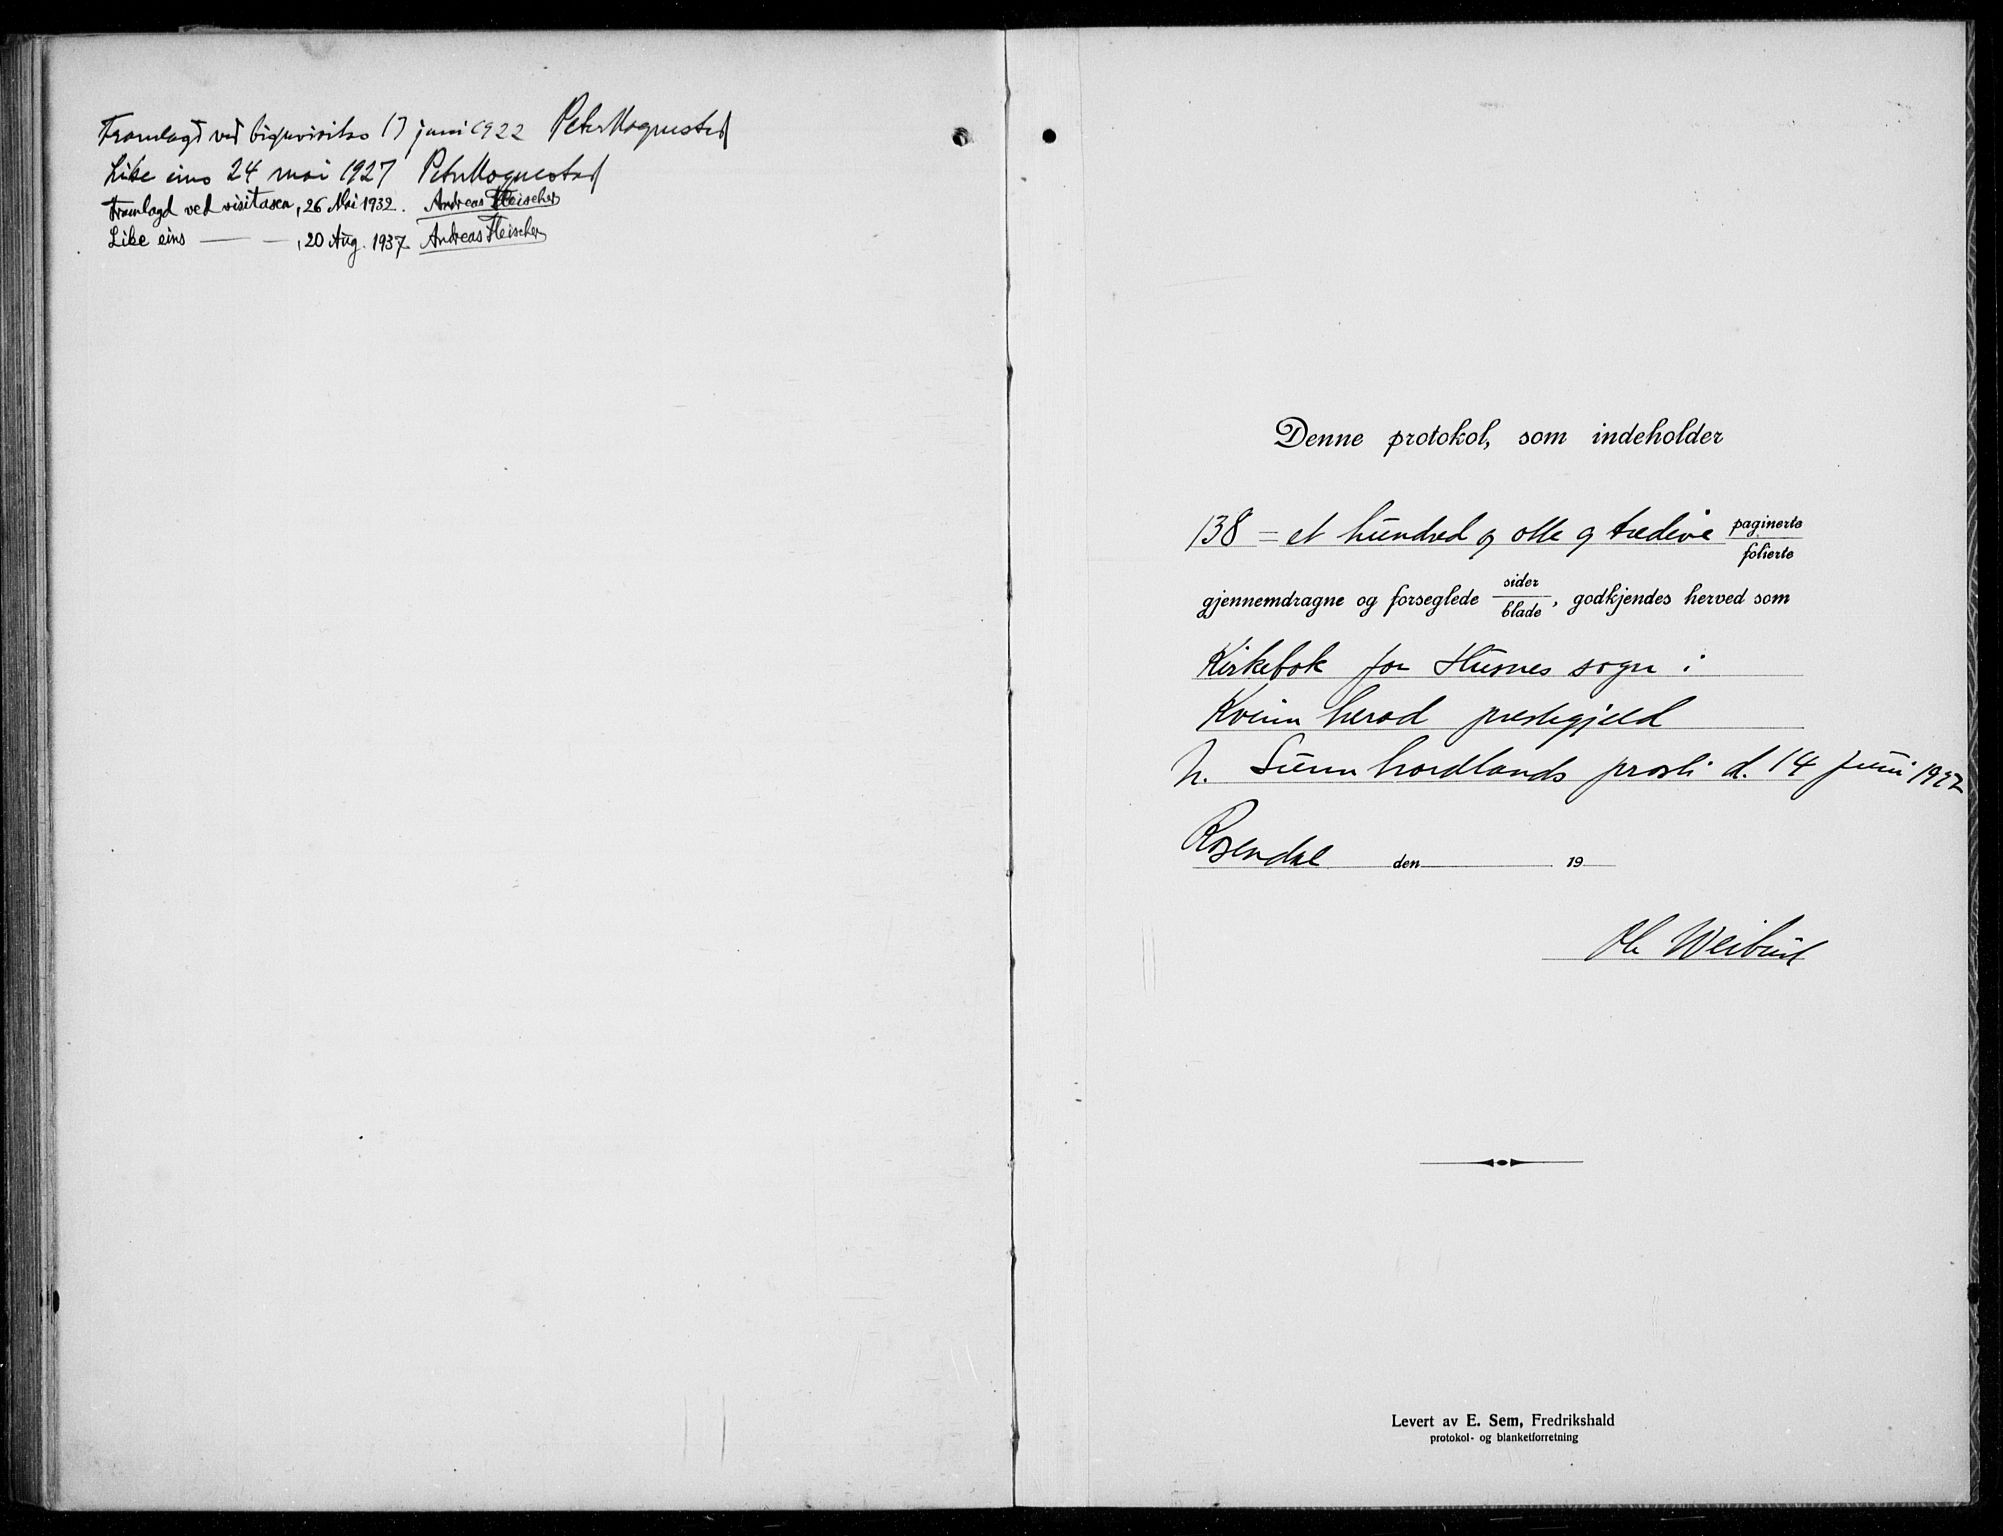 Framlagt ved bispevisitas 17 juni 1922 Peter Hognestad
Like eins 24 mai 1927 Peter Hognestad
Framlagd ved visitasen, 26 Mai 1932. Andreas Fleischer
Like eins — — , 20 Aug. 1937. Andreas Fleischer
Denne protokol, som indeholder
138 = et hundred og otte og tredive paginerte
folierte
gjennemdragne og forseglede sider
blade, godkjendes herved som
Kirkebok for Husnes sogn i
Kvinnherad prestegjeld
N. Sunnhordlands prosti d. 14 Juni 1922
Rosendal den 19
Ole Weibust
Levert av E. Sem, Fredrikshald
protokol- og blanketforretning